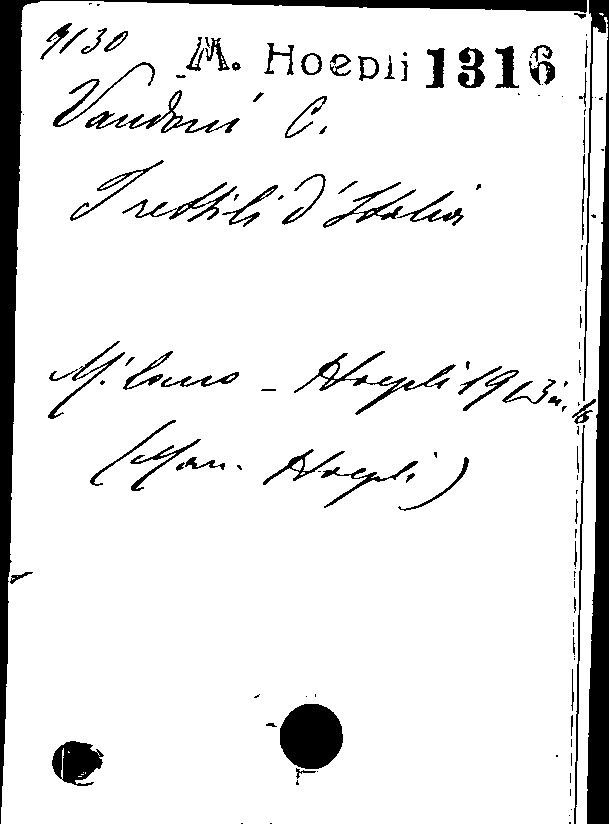 9130 M. Hoepli 1316
Vandoni C.
I rettili d'Italia
Milano - Hoepli 1913 in. 16
(Man. Hoepli)